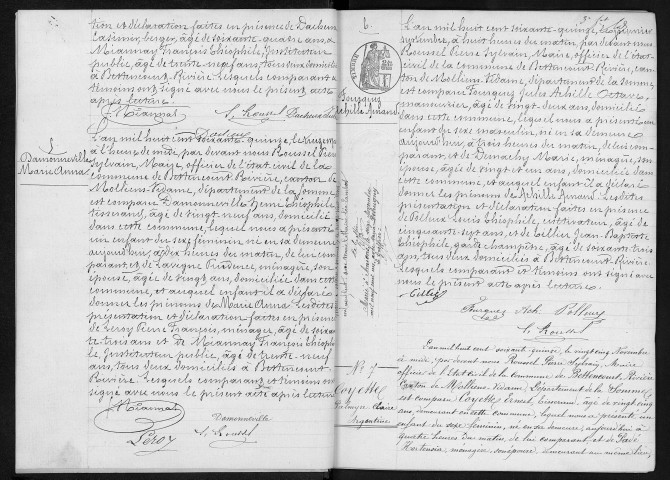 tion et déclaration faites en présence de Dacheux
Casimir, berger, âgé de soixante quatre ans, et
Miannay François Théophile, Instituteur
public, âgé de trente neuf ans, tous deux domiciliés
à Bettencourt-Rivière, lesquels comparant et
témoins ont signé avec nous le présent acte
après lecture.
Miannay P. Roussel Dacheux
5
Damonneville
Marie Anna
L'an mil huit cent soixante quinze, le
à heure de par devant nous Roussel Pierre
Sylvain, Maire, officier de l'état civil de la
commune de Bettencourt-Rivière, canton de
Molliens-Vidame, département de la Somme
est comparu Damonneville Théophile
tisserand, âgé de vingt neuf ans, domicilié
dans cette commune, lequel nous a présenté
un enfant du sexe féminin né en sa demeure
aujourd'hui, à heures du matin, de lui com-
parant et de Prudence, ménagère, son
épouse, âgée de vingt ans, domiciliée dans cette
commune, et auquel enfant il a déclaré
donner les prénoms de Marie Anna. Lesdites
présentation et déclaration faites en présence
de Leroy Pierre François, ménager, âgé de soixante
trois ans et de Miannay François Théo-
phile, Instituteur public, âgé de trente neuf
ans, tous deux domiciliés à Bettencourt-
Rivière, lesquels comparant et témoins ont
signé avec nous le présent acte après lecture.
Miannay Damonneville
Leroy P. Roussel
6
Fourquez
Achille Armand
L'an mil huit cent soixante quinze, le
septembre, à huit heures du matin, par devant nous
Roussel Pierre Sylvain, Maire, officier de l'état-
civil de la commune de Bettencourt-Rivière, can-
ton de Molliens-Vidame, département de la Somme,
est comparu Fourquez Jules Achille Octave,
manouvrier, âgé de vingt deux ans, domicilié
dans cette commune, lequel nous a présenté un
enfant du sexe masculin, né en sa demeure
aujourd'hui, à trois heures du matin, de lui com-
parant, et de Marie, ménagère, son
épouse, âgée de vingt et un ans, domiciliée dans
cette commune, et auquel enfant il a déclaré
donner les prénoms de Achille Armand. Lesdites
présentation et déclaration faites en présence
de Louis Théophile, cultivateur, âgé de
cinquante sept ans, et de Tellier Jean-Baptiste
Théophile, garde champêtre, âgé de soixante trois
ans, tous deux domiciliés à Bettencourt-Rivière
lesquels comparant et témoins ont signé avec
nous le présent acte après lecture.
Tellier
Fourquez Ach.
P. Roussel
N° 7
Coyette
Palmyre Claire
Argentine
L'an mil huit cent soixante-quinze, le vingt cinq Novembre
à midi, par devant nous Roussel Pierre Sylvain, Maire
officier de l'état civil de la commune de Bettencourt-Rivière
Canton de Molliens-Vidame, Département de la Somme,
est comparu Coyette Ernest, âgé de vingt cinq
ans, demeurant en cette commune, lequel nous a présenté un
enfant du sexe féminin, né en sa demeure, aujourd'hui à
quatre heures du matin, de lui comparant et de
Hortense, ménagère, son épouse, demeurant au même lieu,